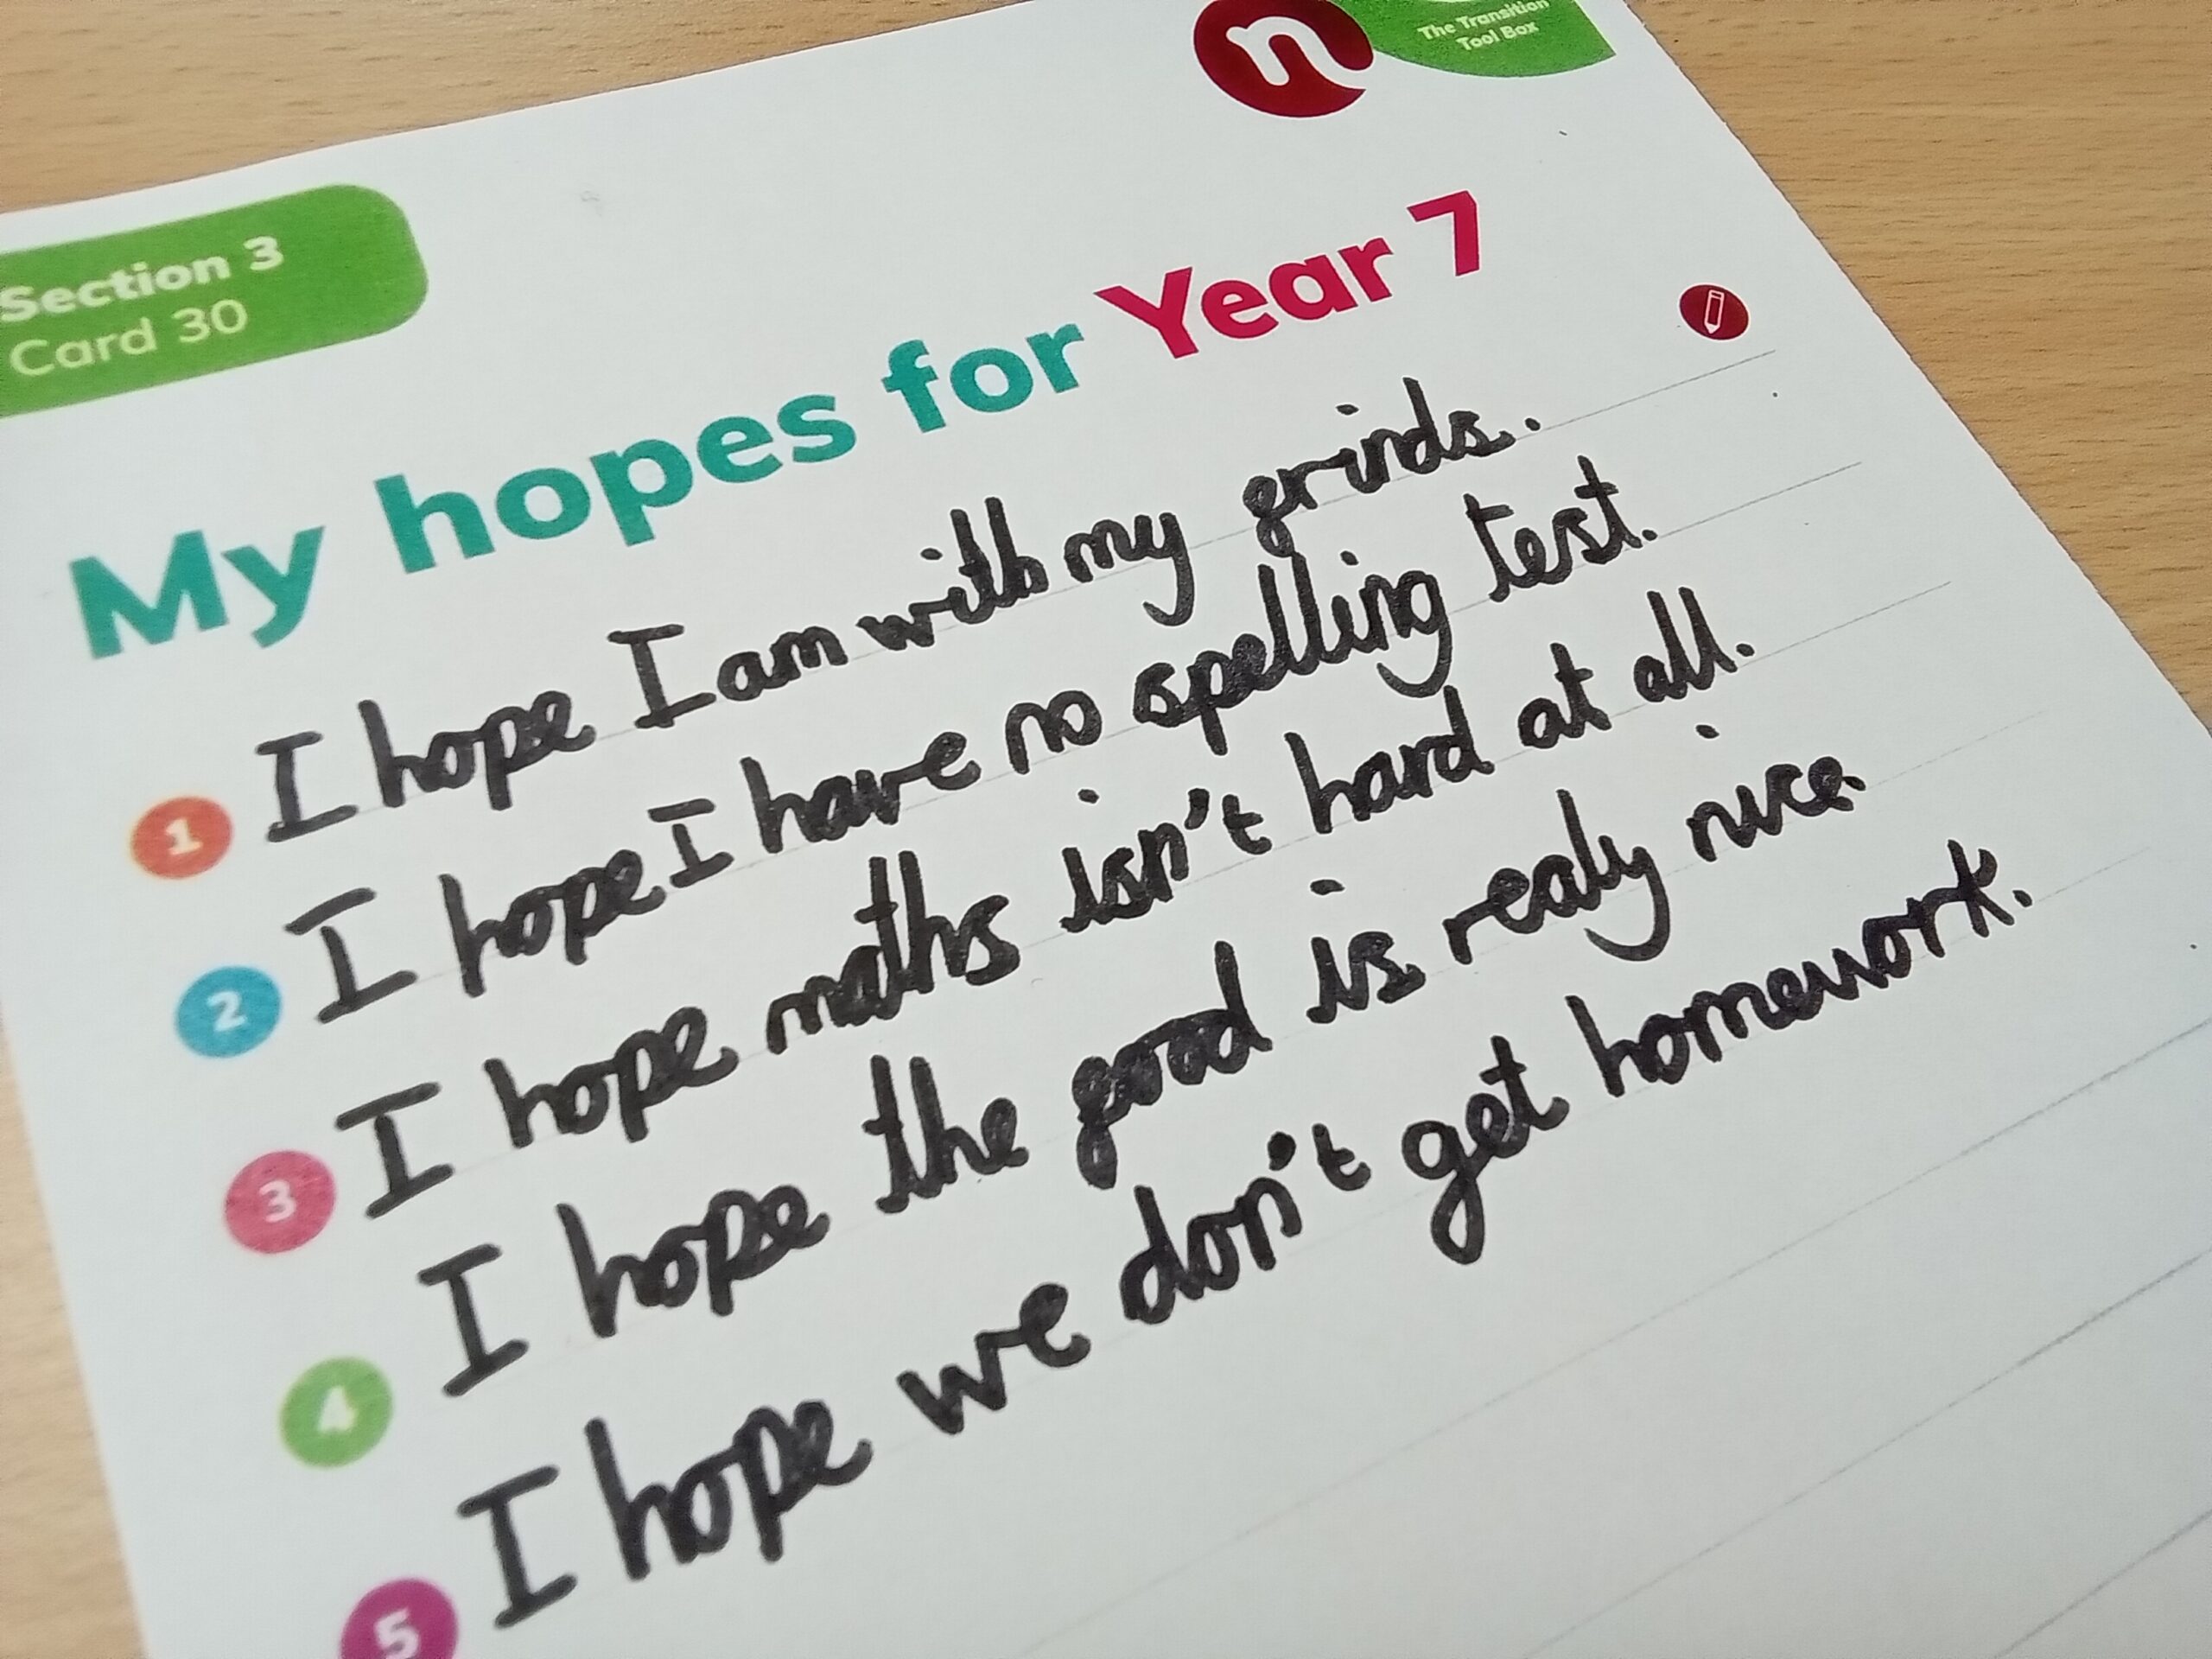 n
The Transition
Tool Box
Section 3
Card 30
My hopes for Year 7
1 I hope I am with my grinds.
2 I hope I have no spelling test.
3 I hope maths isn't hard at all.
4 I hope the good is realy nice
5 I hope we don't get homework.